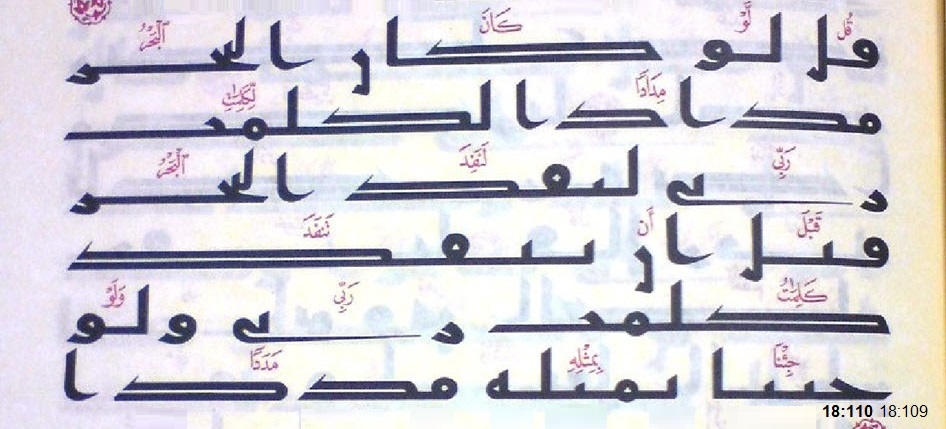 قُل لَّوْ كَانَ ٱلْبَحْرُ
قل لو كان البحر
مِدَادًا لِّكَلِمَٰتِ
مدادا لكلمت
رَبِّي لَنَفِدَ ٱلْبَحْرُ
ربي لنفد البحر
قَبْلَ أَن تَنفَدَ
قبل ان تنفد
كَلِمَٰتُ رَبِّي وَلَوْ
كلمت ربي ولو
جِئْنَا بِمِثْلِهِ مَدَدًا
جئنا بمثله مددا
18:110 18:109